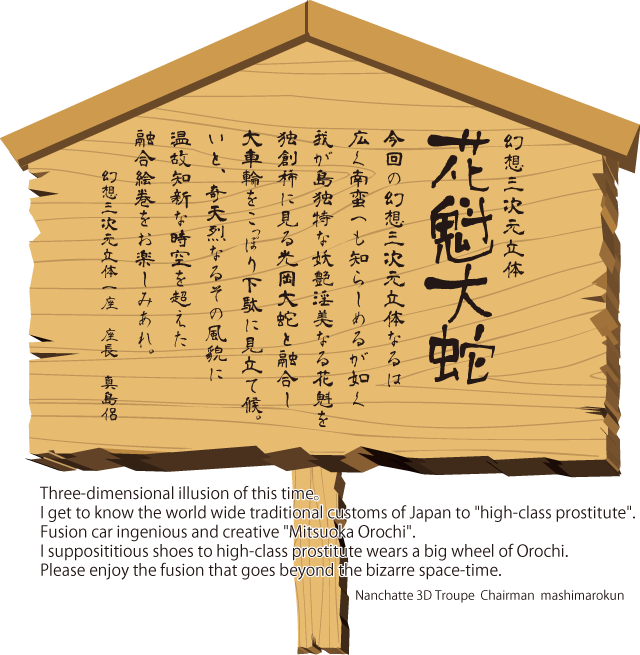 幻想三次元立体
花魁大蛇
今回の幻想三次元立体なるは
広く南蛮へも知らしめるが如く
我が島独特な妖艶淫美なる花魁を
独創柿に見る光岡大蛇と融合し
大車輪をこっぽり下駄に見立て候。
いと、奇天烈なるその風貌に
温故知新な時空を超えた
融合絵巻をお楽しみあれ。
幻想三次元立体一座 座長 真島侶
Three-dimensional illusion of this time。
I get to know the world wide traditional customs of Japan to "high-class prostitute".
Fusion car ingenious and creative "Mitsuoka Orochi".
I supposititious shoes to high-class prostitute wears a big wheel of Orochi.
Please enjoy the fusion that goes beyond the bizarre space-time.
Nanchatte 3D Troupe Chairman mashimarokun